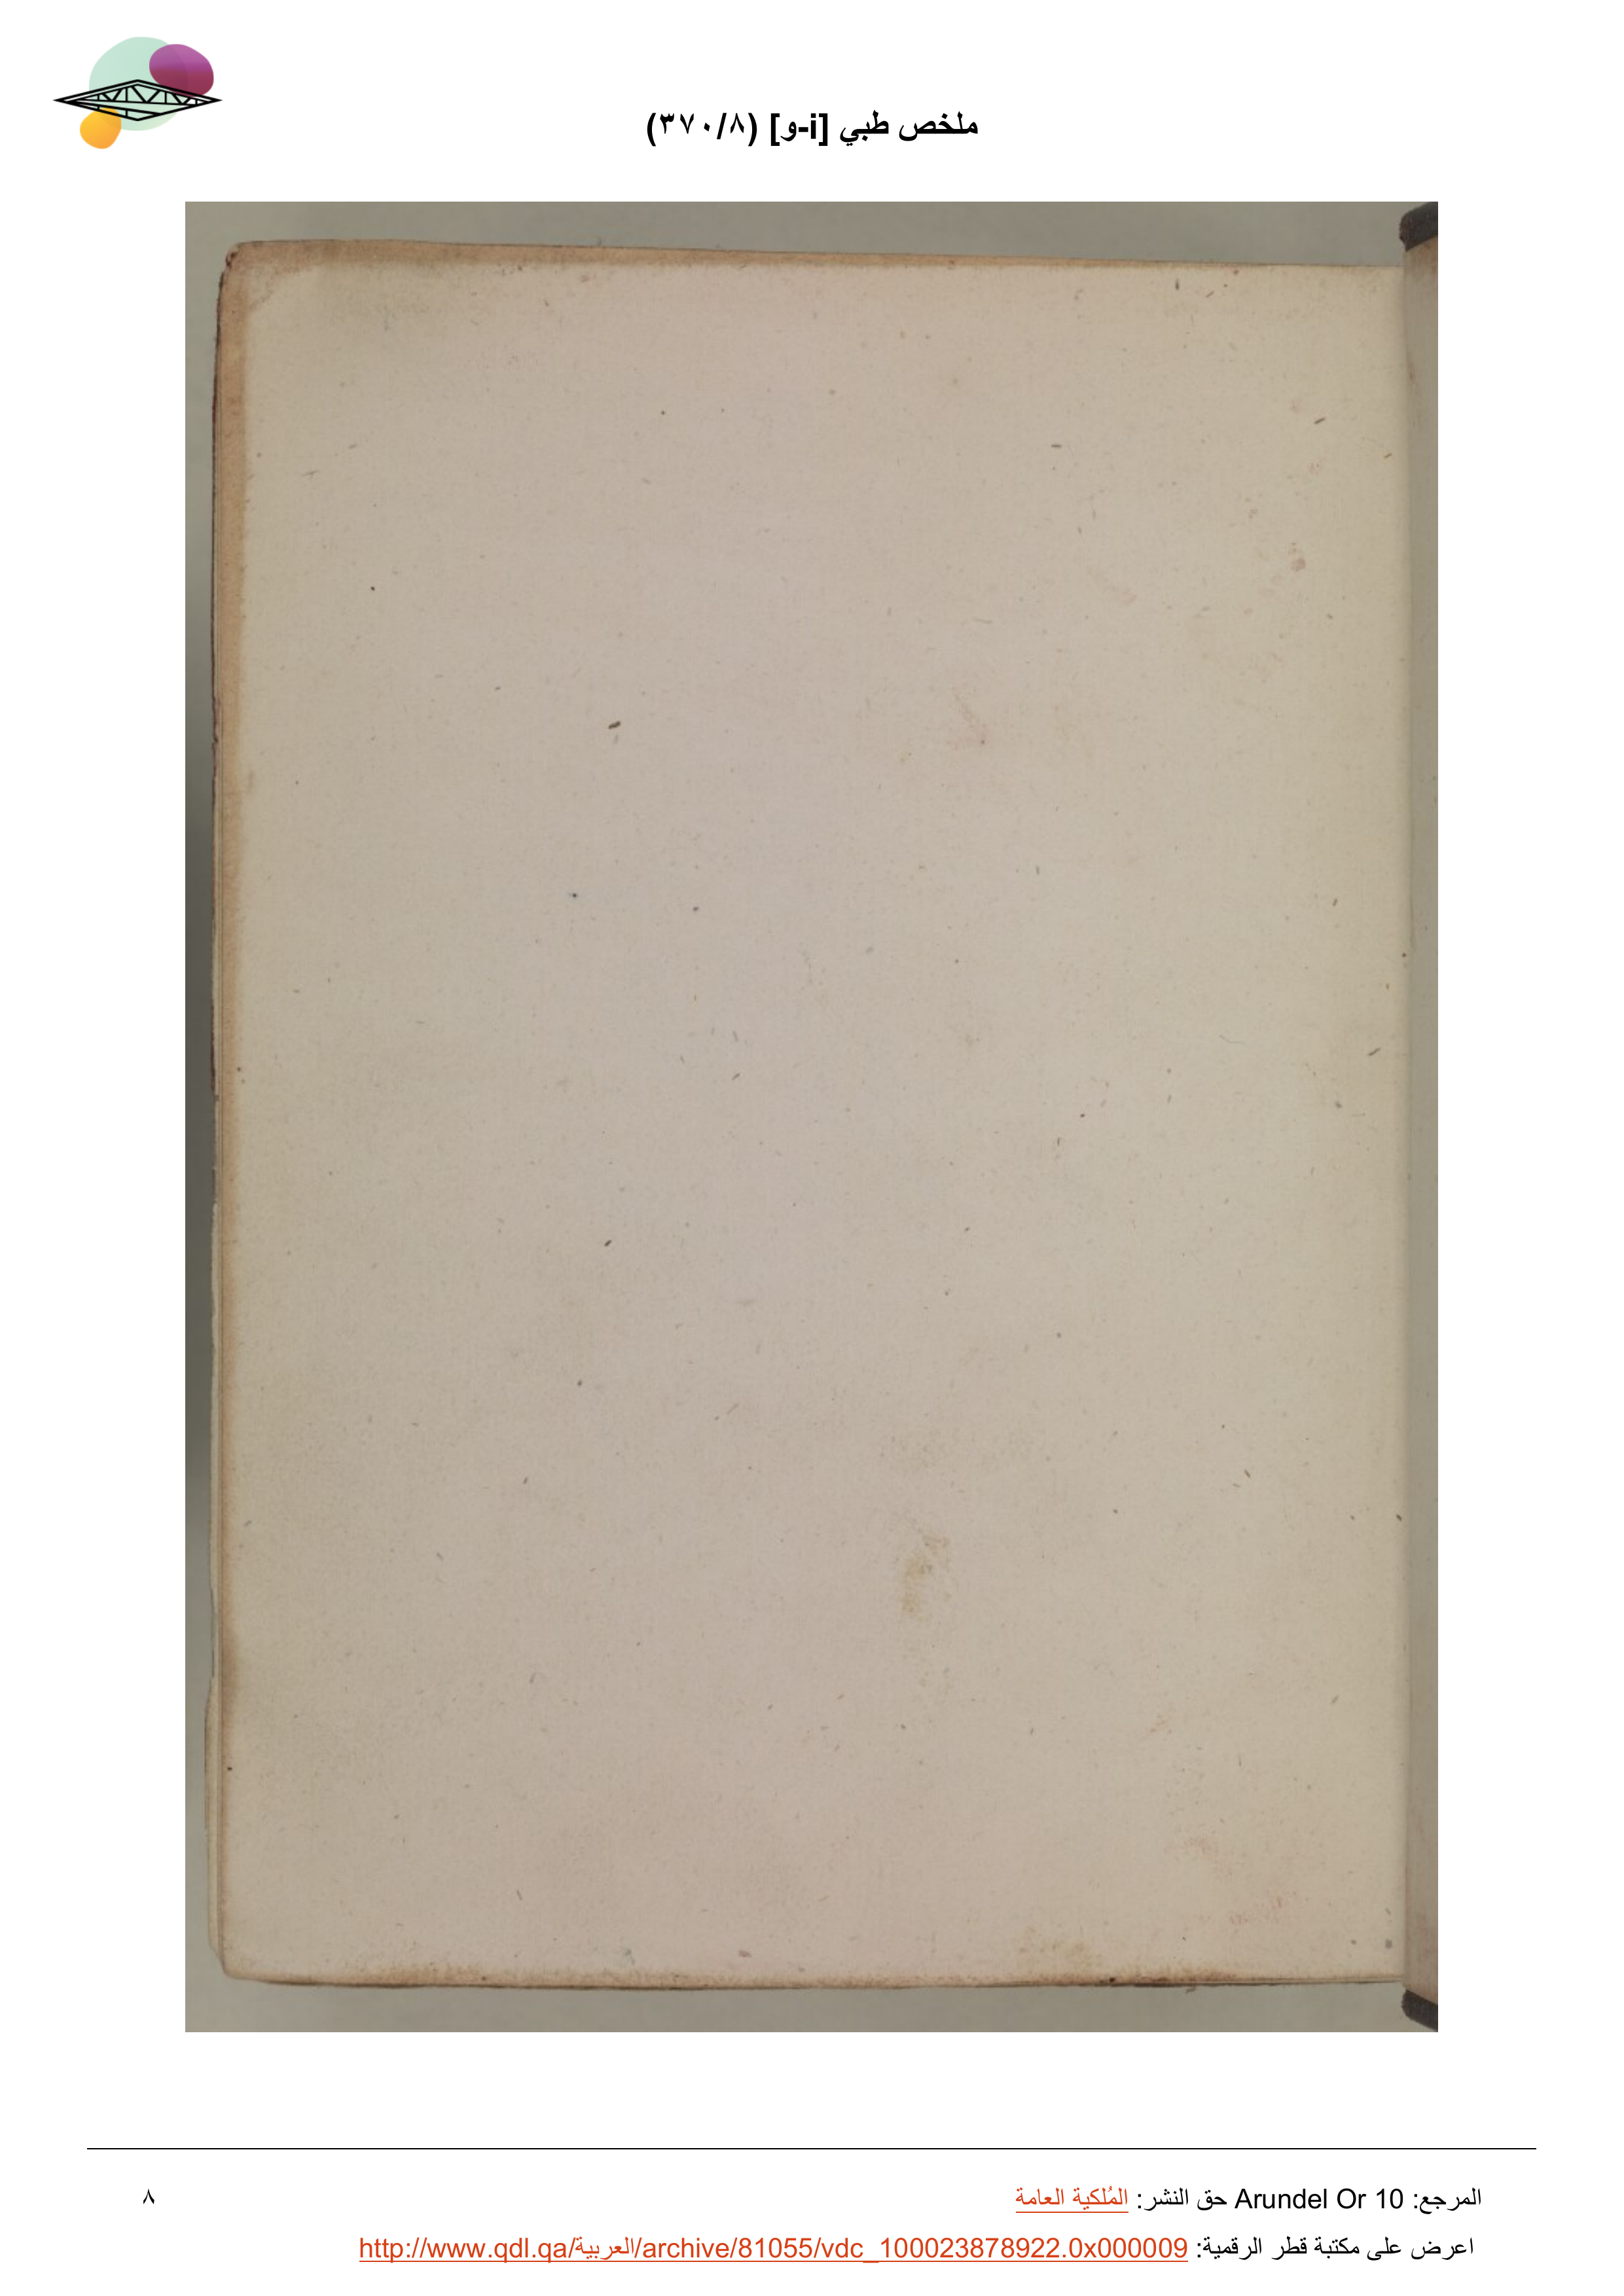 ملخص طبي [i-و] (٣٧٠/٨)
المرجع: Arundel Or 10 حق النشر: المُلكية العامة
٨
اعرض على مكتبة قطر الرقمية: http://www.qdl.qa/العربية/archive/81055/vdc_100023878922.0x000009